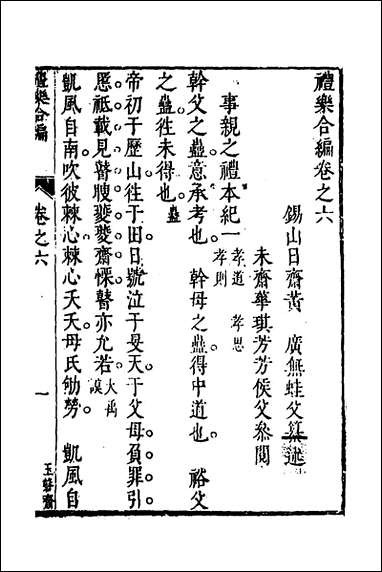 禮樂合編卷之六
錫山日齋黃　廣無蛙父纂述
未齋華琪芳芳侯父參閱
事親之禮本紀一
孝道　孝思
孝則
幹父之蠱意承考也　幹母之蠱得中道也　裕父
之蠱往未得也蠱
帝初于歷山往于田日號泣于旻天于父母負罪引
慝祗載見瞽瞍夔夔齋慄瞽亦允若大禹謨
凱風自南吹彼棘心棘心夭夭母氏劬勞　凱風自
禮樂合編
卷之六
一
玉磬齋